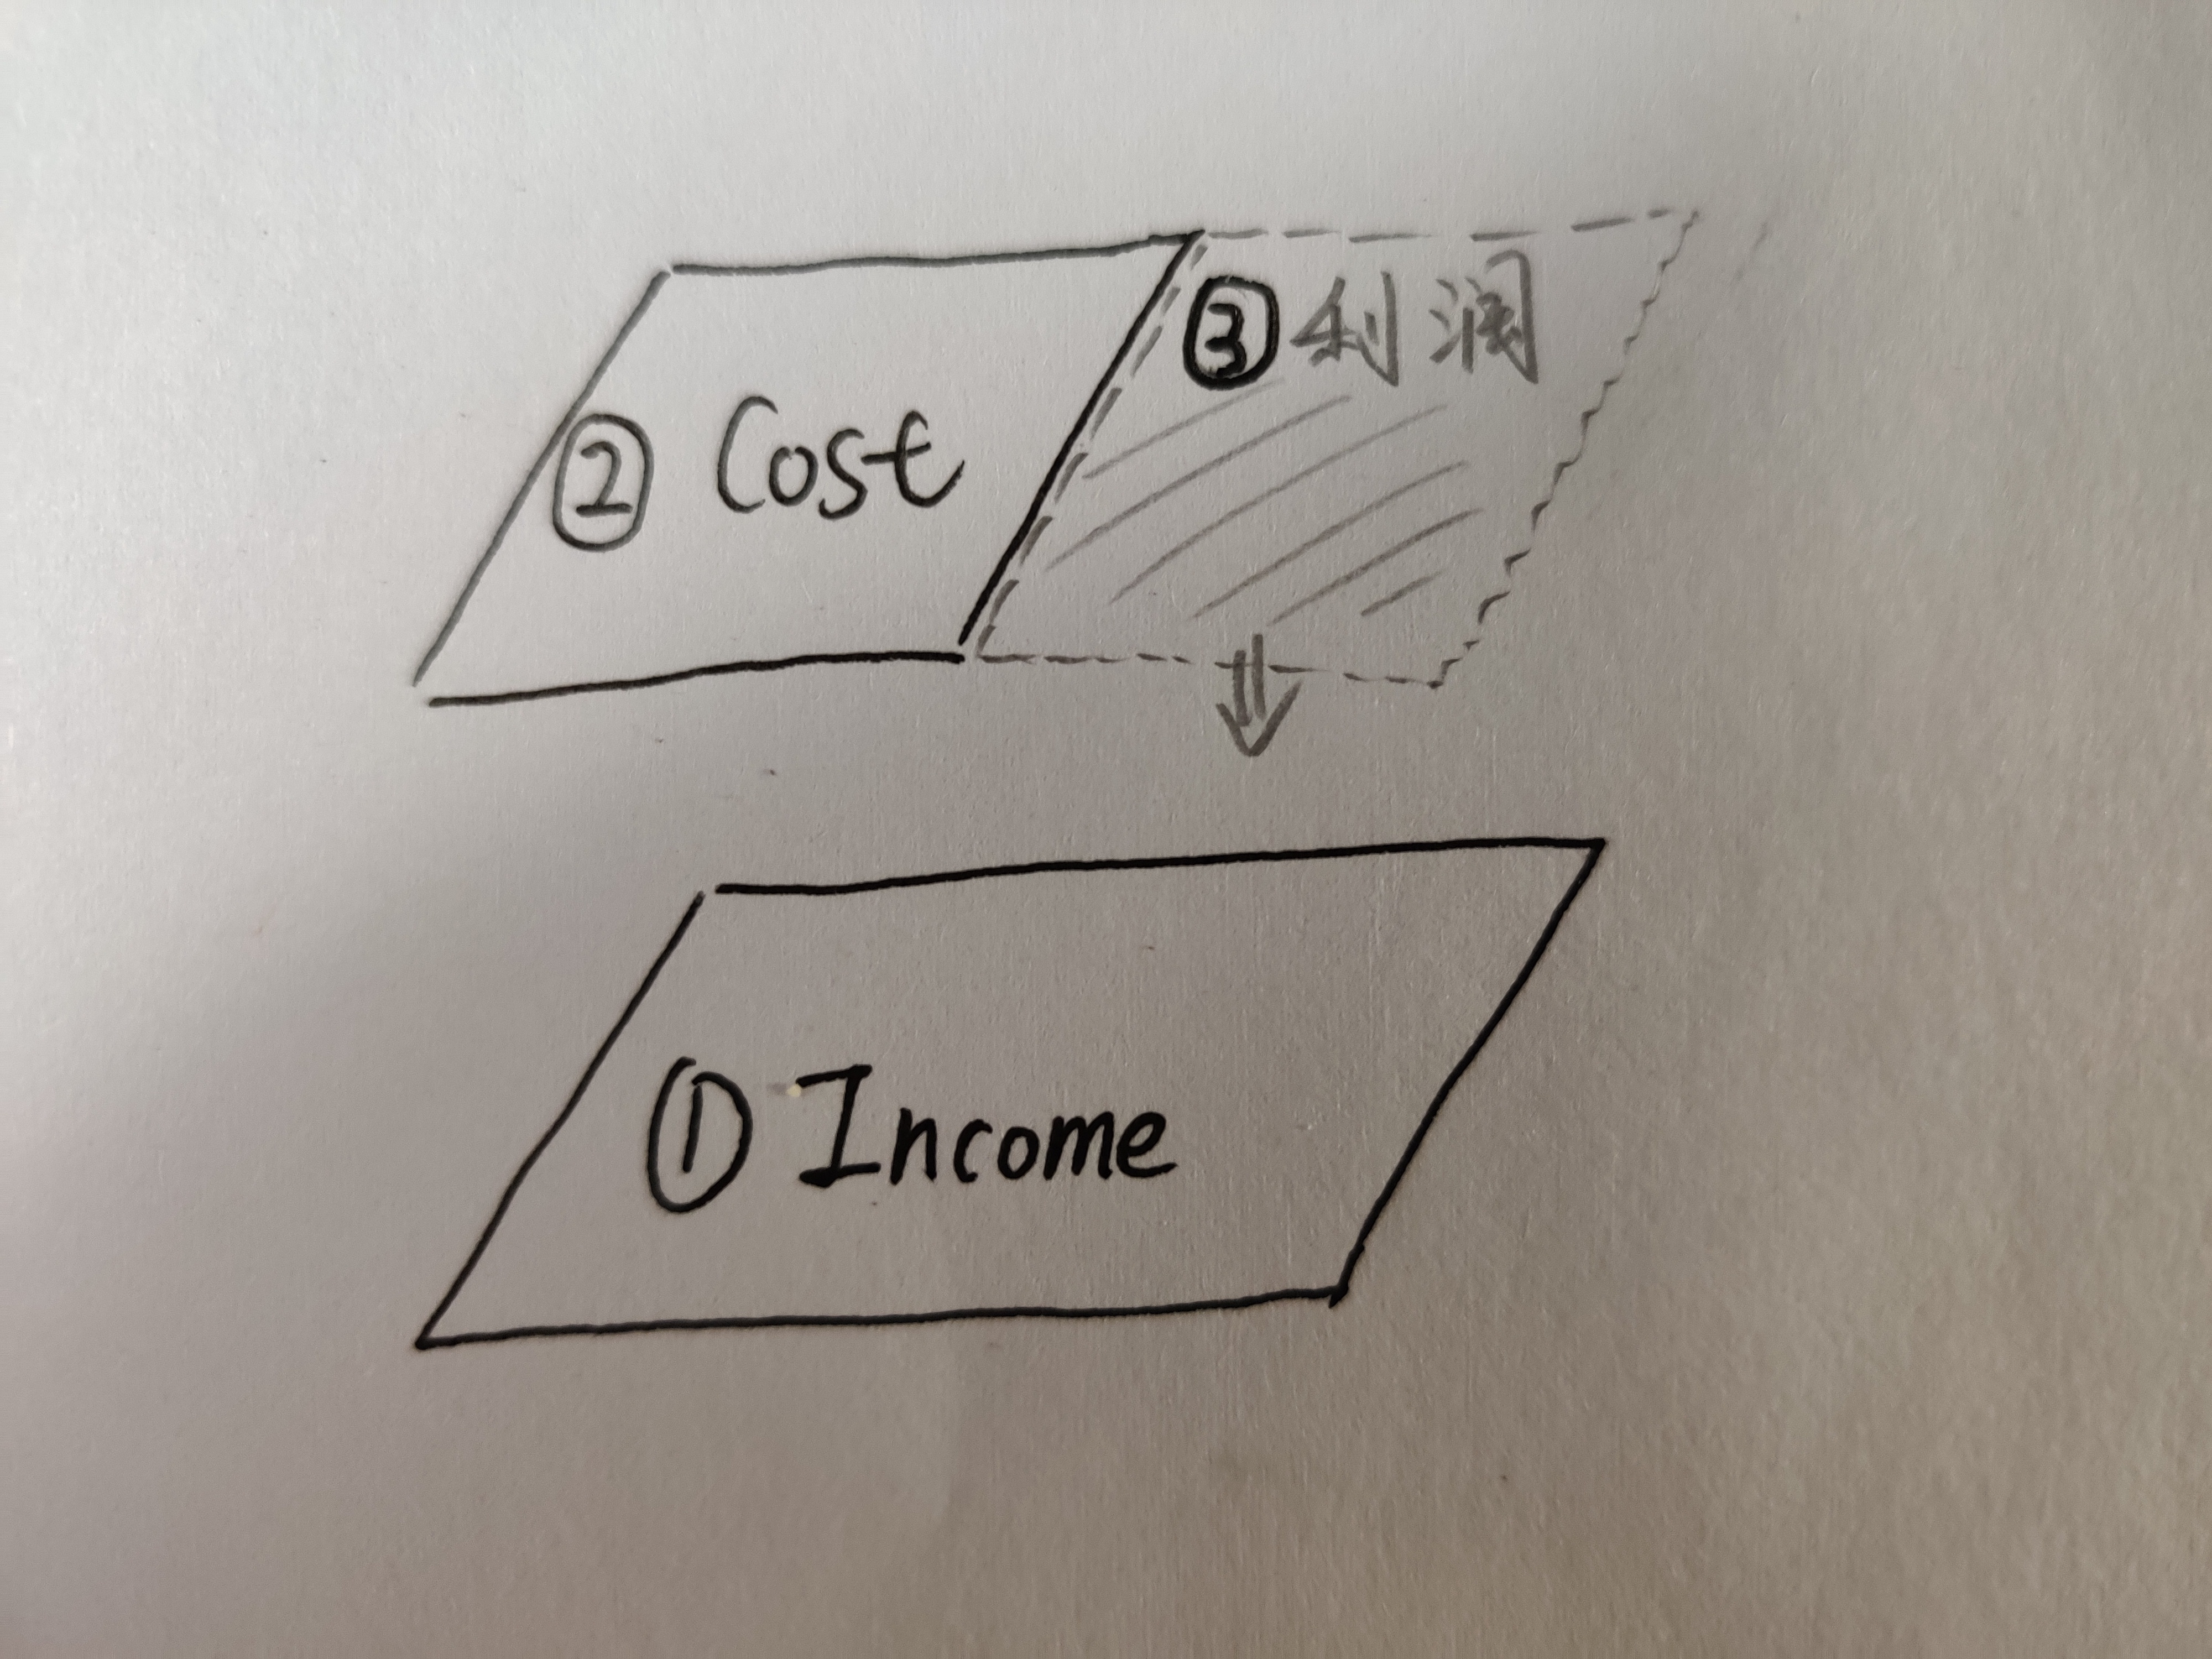 ② Cost
③ 利润
① Income